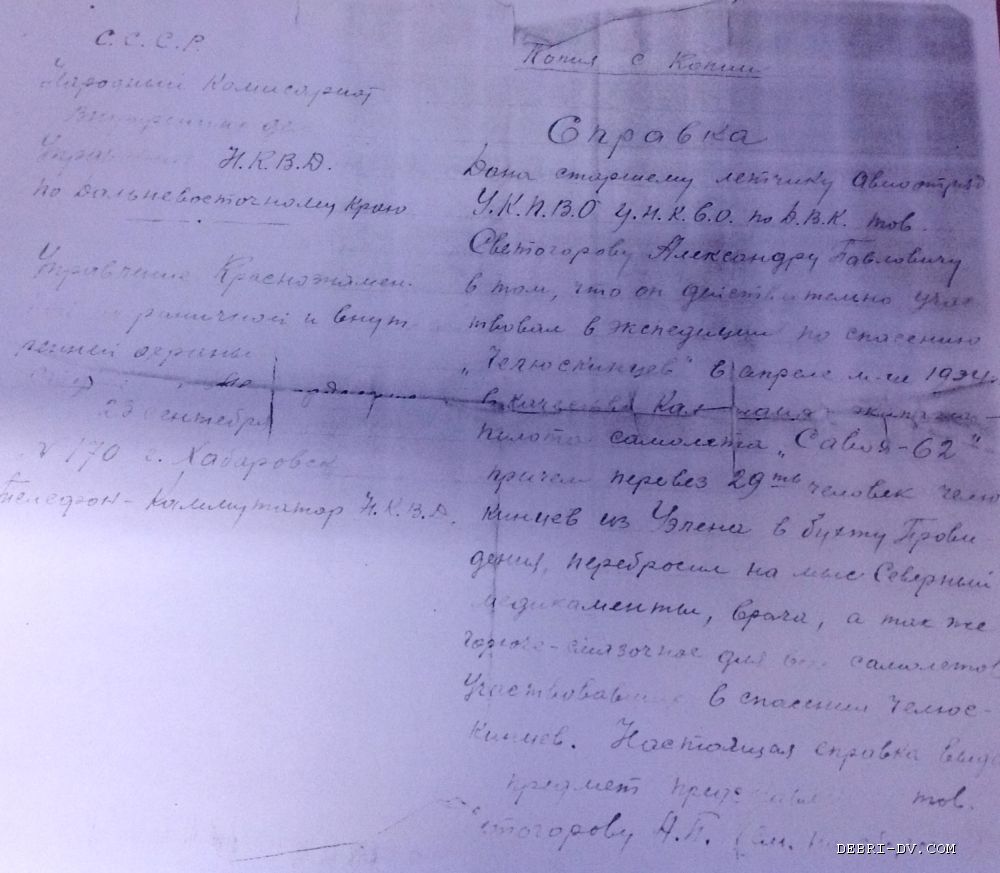 С.С.С.Р.
Народный Комисариат
Н.К.В.Д.
по Дальневосточному краю
Управление Краснознамен-
раничной и внут
ренней охраны
23 сентября
№ 170 г. Хабаровск
Телефон - Коммутатор Н.К.В.Д.
Копия с Копии
Справка
Дана старшему летчику Авиоотряд
У.К.П.В.О У.Н.К.В.О. по Д.В.К. тов.
Светогорову Александру Павловичу
в том, что он действительно учас
твовал в экспедиции по спасению
„Челюскинцев" в апреле м-це 1934
в качестве экипажа
пилота самолета „Савоя-62"
причем перевез 29ть человек челю
кинцев из Уэлена в бухту Прови
дения, перебросил на мыс Северный
медикаменты, врача, а так же
горюче-смязочное для самолетов
Участвовавш в спасении Челюс-
кинцев. Настоящая справка выда
предмет тов.
етогорову А.П.
DEBRI-DV.COM